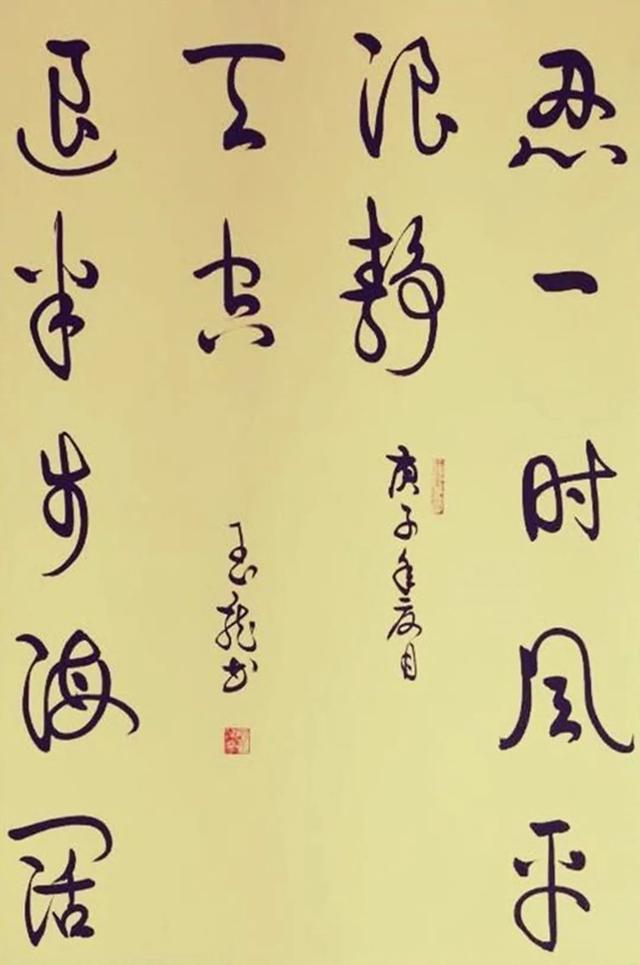 忍一时风平
浪静
庚子年夏月
退半步海阔
天空
玉龙书